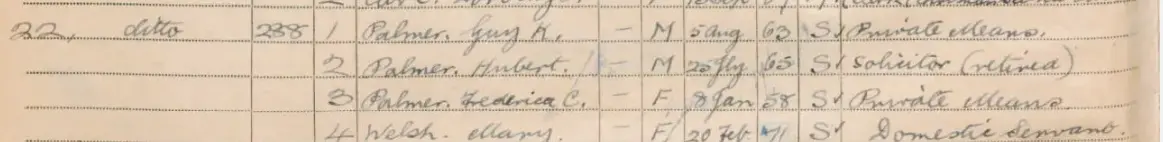 22, ditto 288 1 Palmer. Guy K. – M 5 Aug 63 S Private Means.
2 Palmer. Hubert. – M 25 Jly 65 S Solicitor (retired)
3 Palmer. Frederica C. – F 8 Jan 58 S Private Means.
4 Welsh. Mary. – F 20 Feb 71 S Domestic Servant.